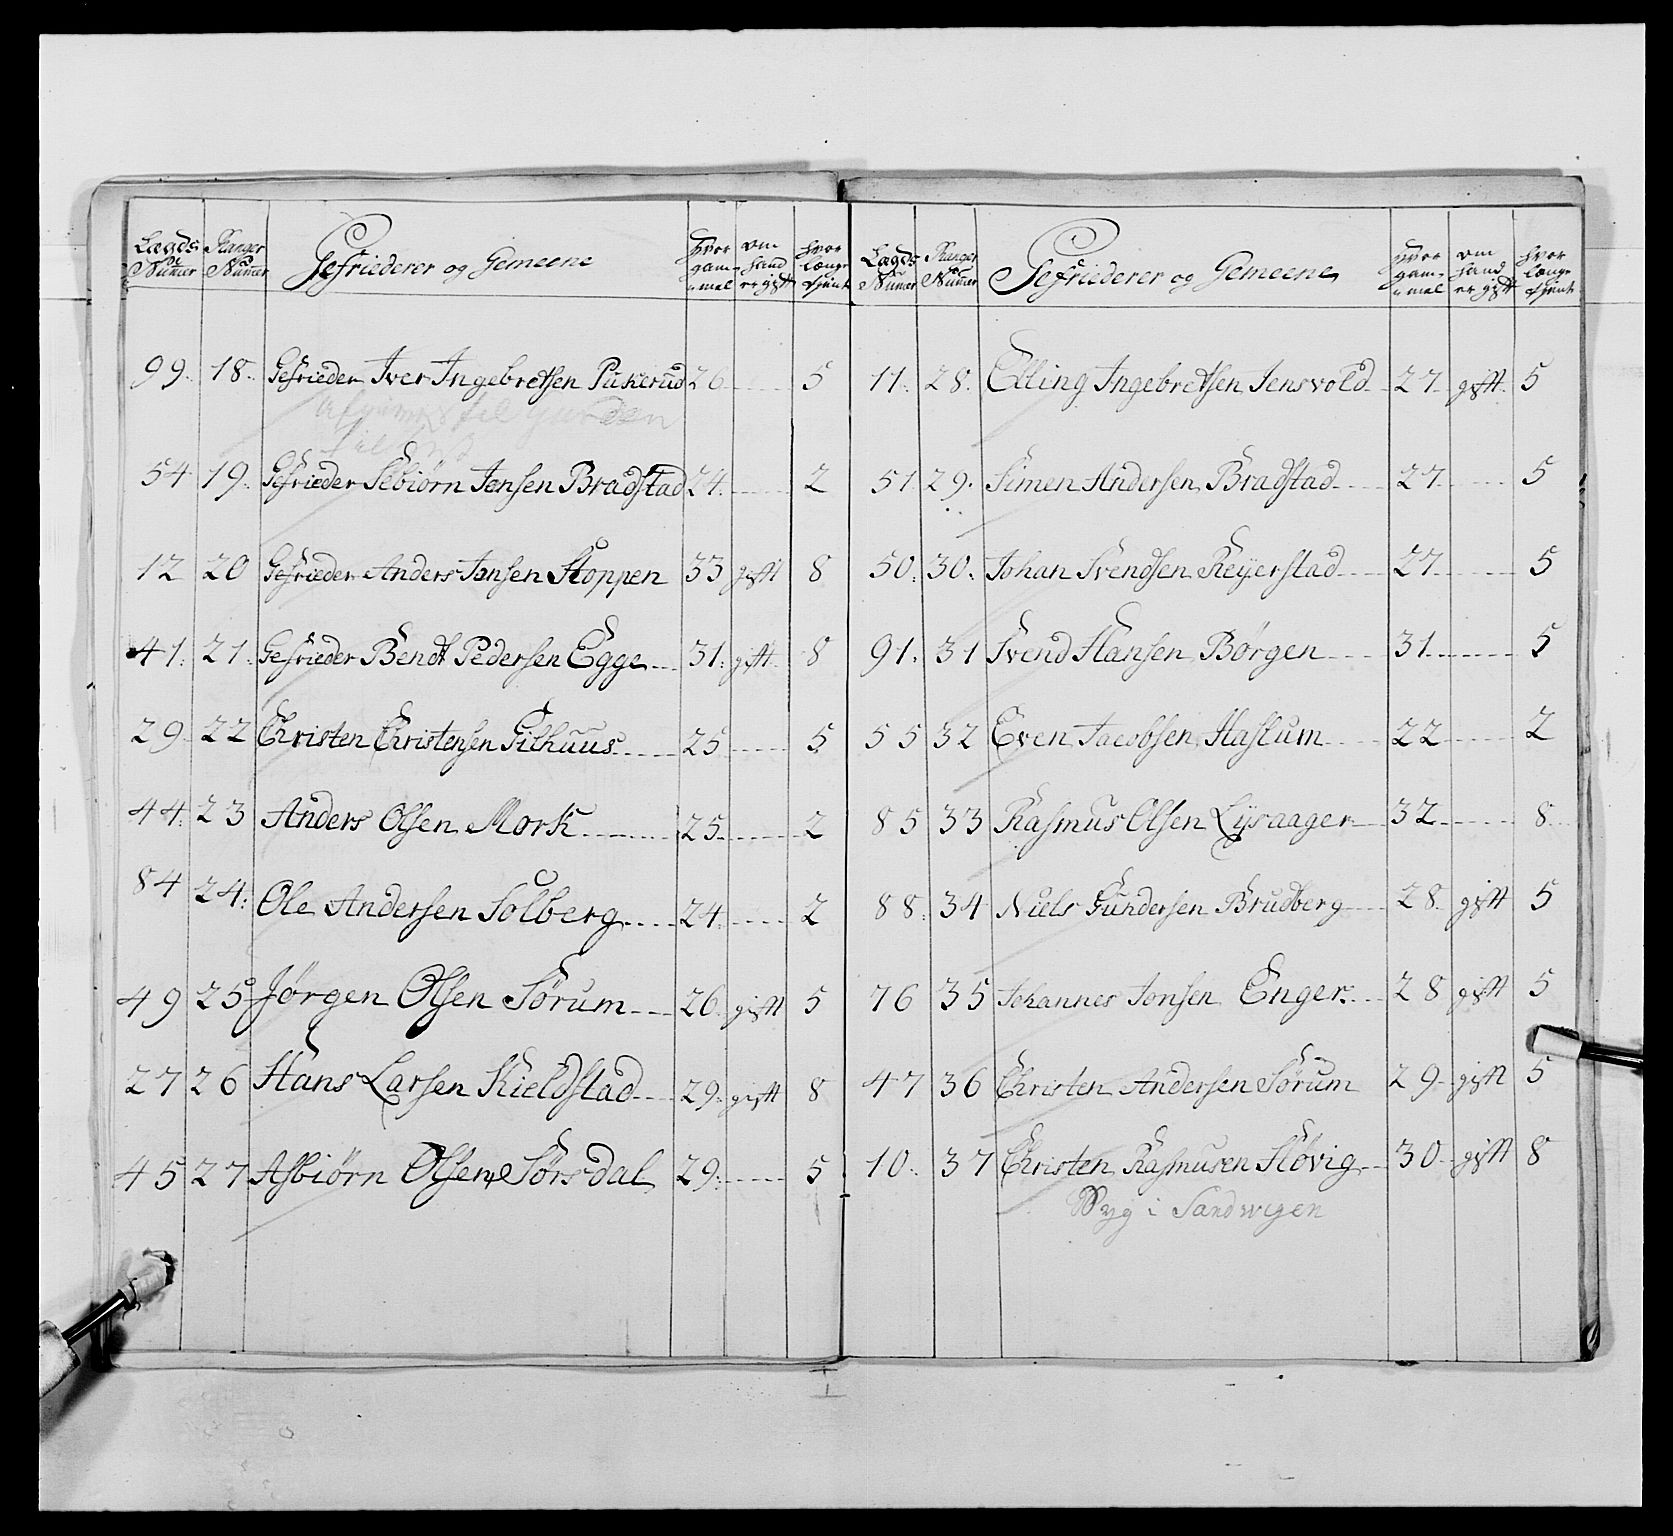 Lægds Numer Ranger Numer Gefriederer og Gemeene hvor gam-mel om hand er gift hvor længe tjent
99. 18. Gefrieder Iver Ingebretsen Pukerud 26 5
til
54 19. Gefrieder Sebiörn Jensen Bradstad 24. 2
12 20 Gefrieder Anders Jonsen Stoppen 33 gift 8
41. 21. Gefrieder Bendt Pedersen Egge 31. gift 8
29. 22 Christen Christensen Gilhuus 25 5
44. 23 Anders Olsen Mork 25 2
84 24. Ole Andersen Solberg 24 2
49 25 Jörgen Olsen Sörum 26 gift 5
27 26 Hans Larsen Kieldstad 29. gift 8
45 27 Asbiörn Olsen Sörsdal 29. 5
Lægds Numer Ranger Numer Gefriederer og Gemeene hvor gam-mel om hand er gift hvor længe tjent
11. 28. Elling Ingebretsen Jensvold 27 gift 5
51 29. Simen Andersen Bradstad 27 5
50. 30. Johan Svendsen Reyerstad 27 5
91. 31 Svend Hansen Börgen 31 5
55 32 Even Jacobsen Haslum 22 2
85 33 Rasmus Olsen Lysaager 32 8
88. 34 Niels Gundersen Brudberg 28 gift 5
76 35 Johannes Jonsen Enger 28 gift 5
47 36 Christen Andersen Sörum 29 gift 5
10. 37 Christen Rasmusen Hövig 30 gift 8
Syg i Sandwigen